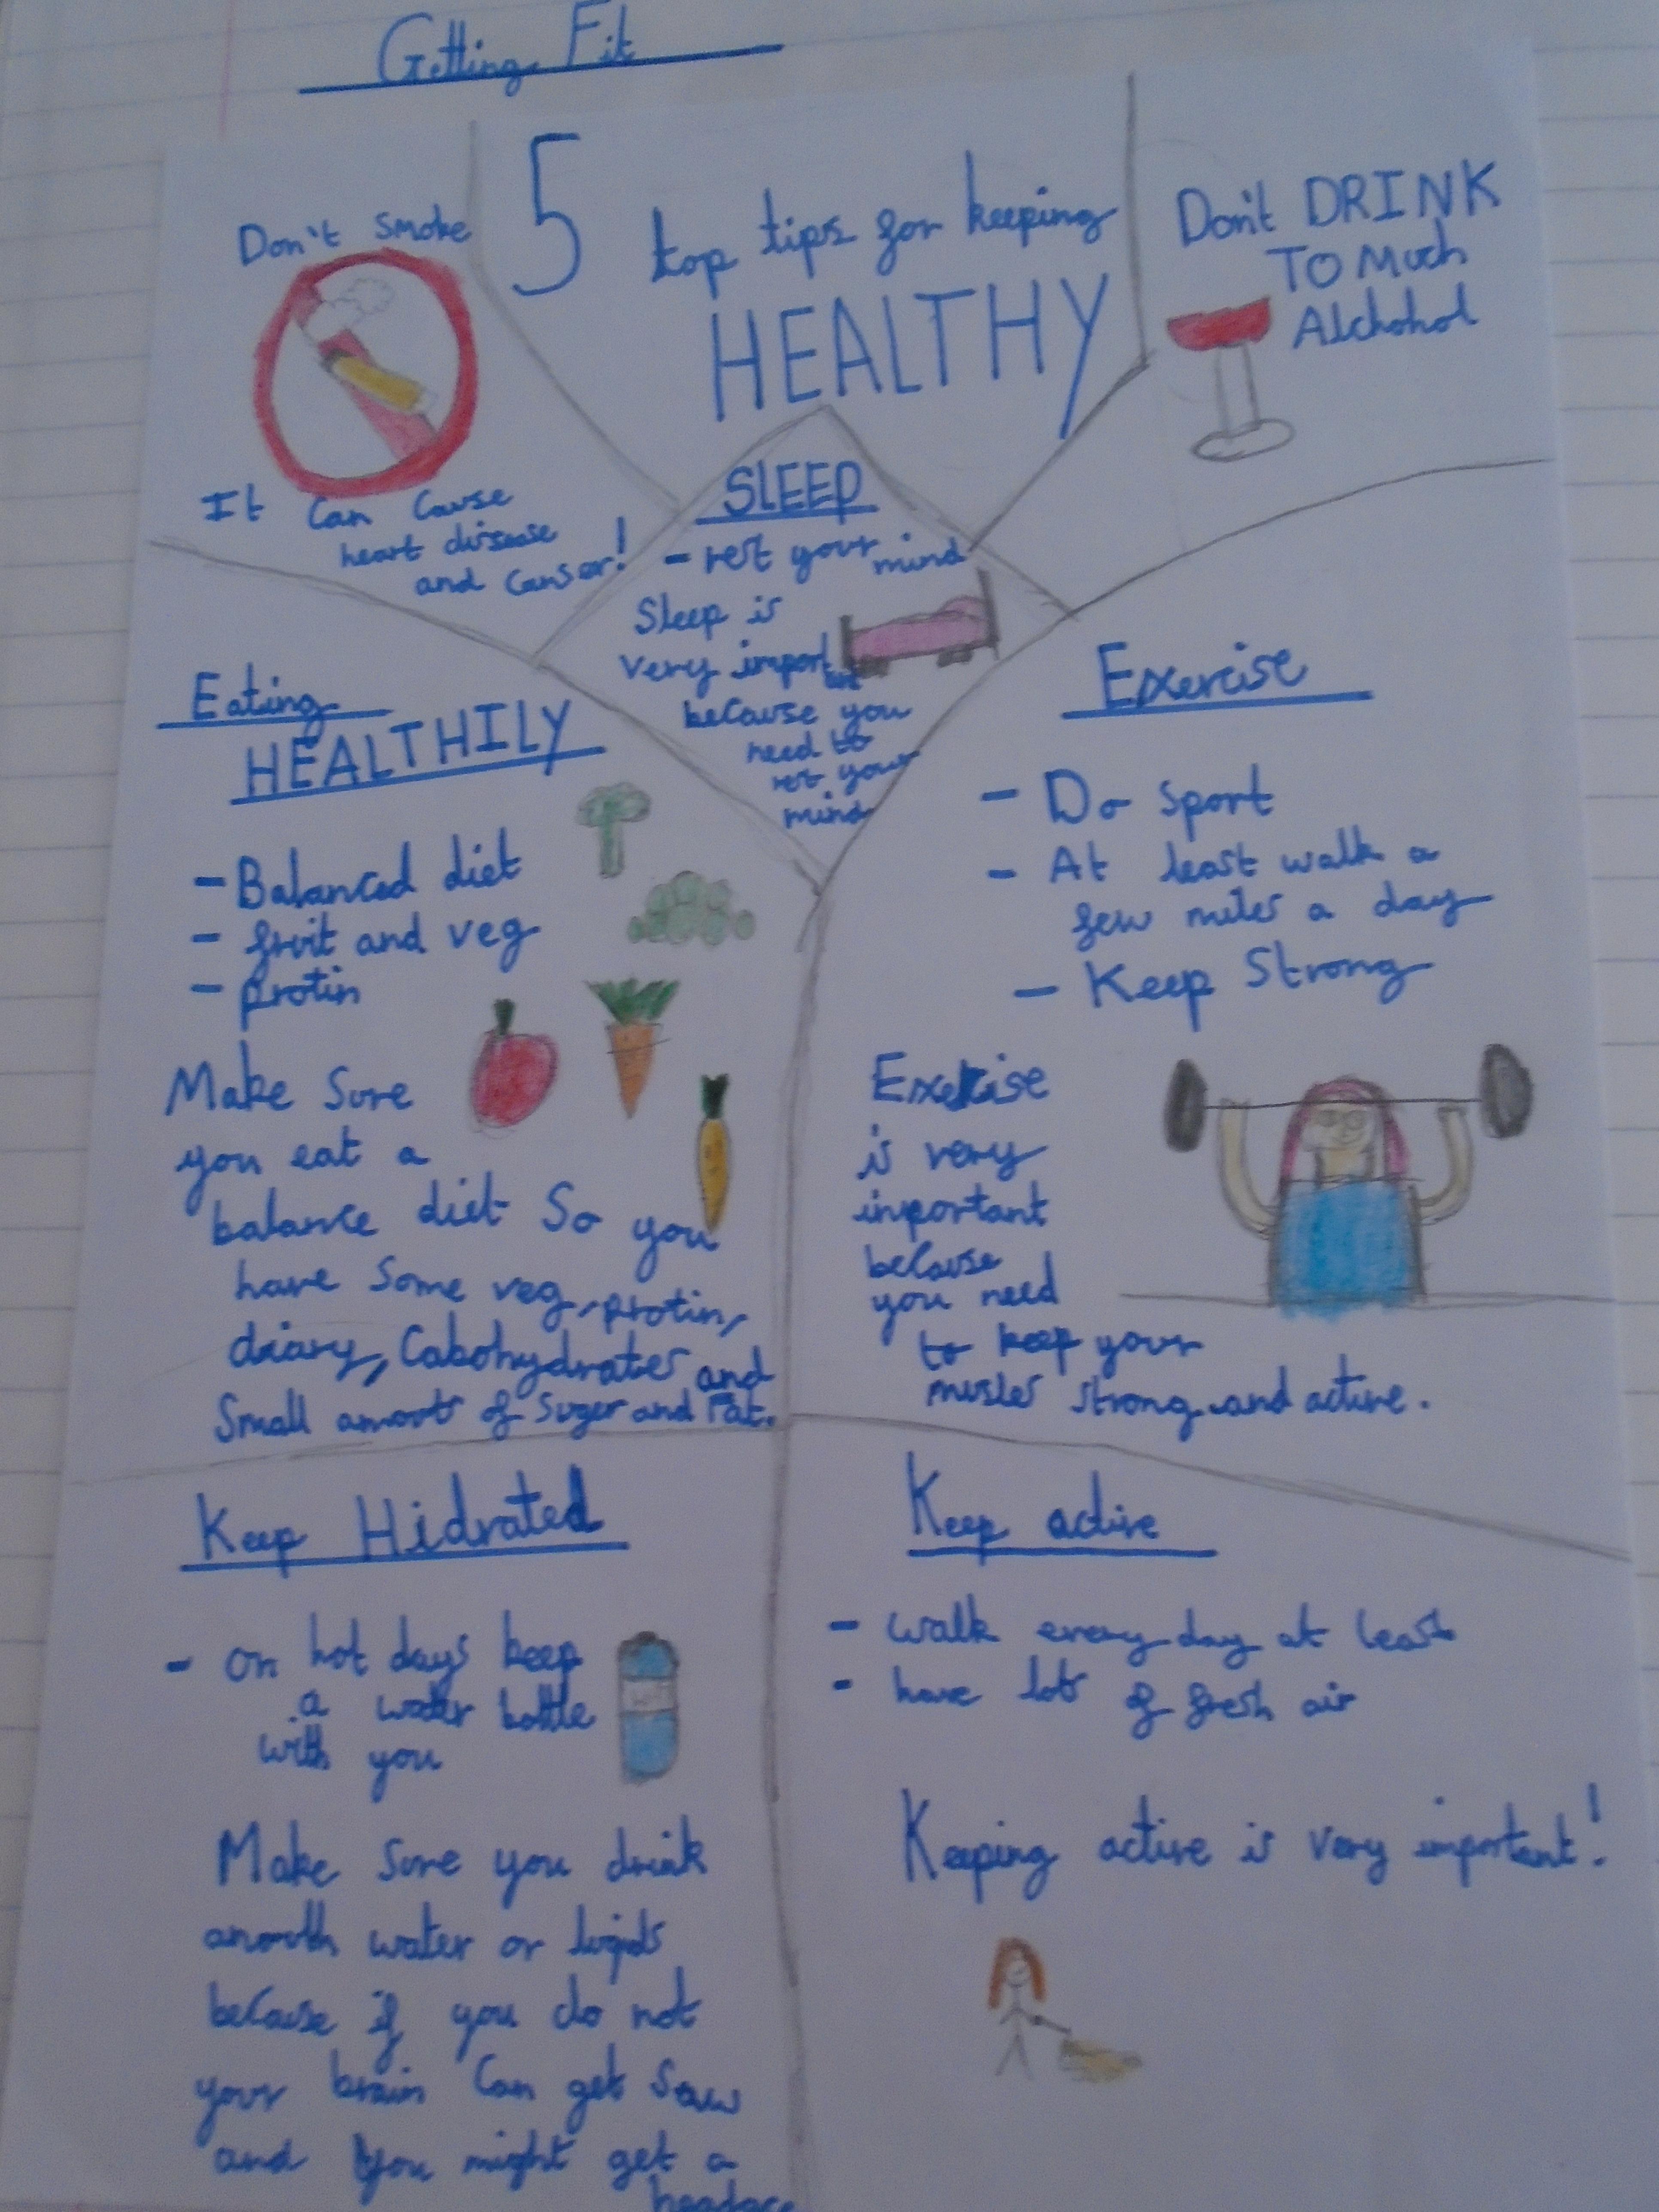 Getting Fit
5 top tips for keeping
HEALTHY
Don't smoke
It can cause
heart disease
and canser!
Don't DRINK
TO Much
Alchohol
SLEEP
- rest your mind
Sleep is
very important
because you
need to
rest your
mind
Eating
HEALTHILY
- Balanced diet
- fruit and veg
- protin
Make sure
you eat a
balance diet so you
have some veg, protin,
diary, Cabohydrates and
small amoots of suger and Fat.
Exercise
- Do sport
- At least walk a
few miles a day
- Keep Strong
Exercise
is very
important
because
you need
to keep your
musles strong and active.
Keep Hidrated
- on hot days keep
a water bottle
with you
Make sure you drink
water or liqids
because if you do not
your brain can get saw
and you might get a
headace
Keep active
- walk every day at least
- have lots of fresh air
Keeping active is very important!